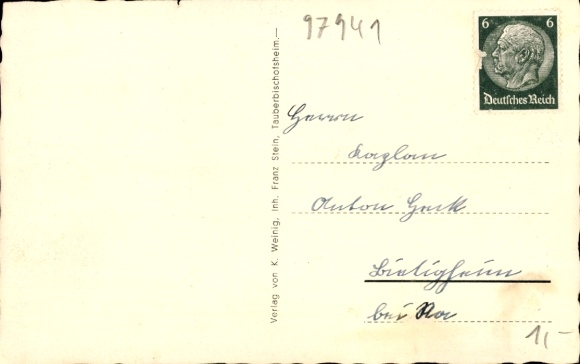 97941
6 6
Deutsches Reich
Verlag von K. Weinig, Inh. Franz Stein, Tauberbischofsheim.—
Herrn
Kaplan
Anton Heck
Bietigheim
bei Ra
1,-